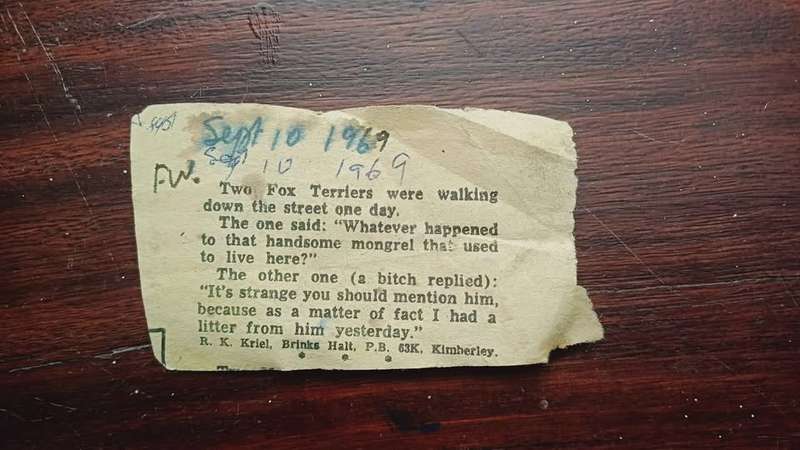 Sept 10 1969
Sept 10 1969
F.W.
Two Fox Terriers were walking
down the street one day.
The one said: "Whatever happened
to that handsome mongrel that used
to live here?"
The other one (a bitch replied):
"It's strange you should mention him,
because as a matter of fact I had a
litter from him yesterday."
R. K. Kriel, Brinks Halt, P.B. 63K, Kimberley.
* * *